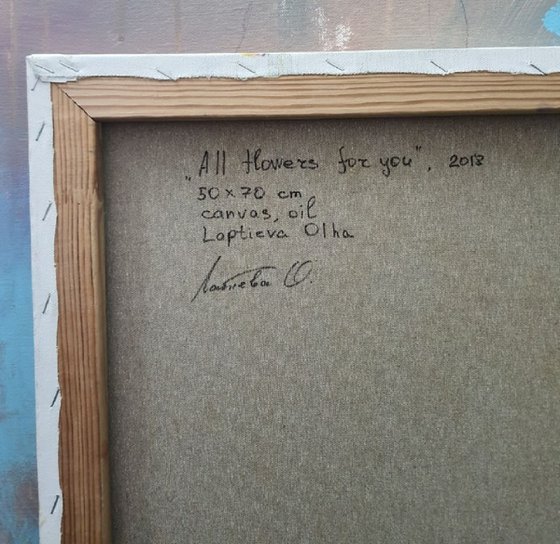 „All flowers for you", 2018
50 x 70 cm
canvas, oil
Laptieva Olha
Лаптева О.